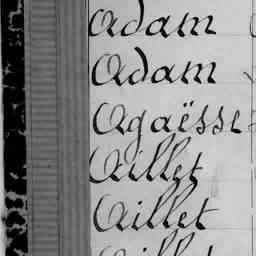 Adam
Adam
Agaësse
Aillet
Aillet
Aillet